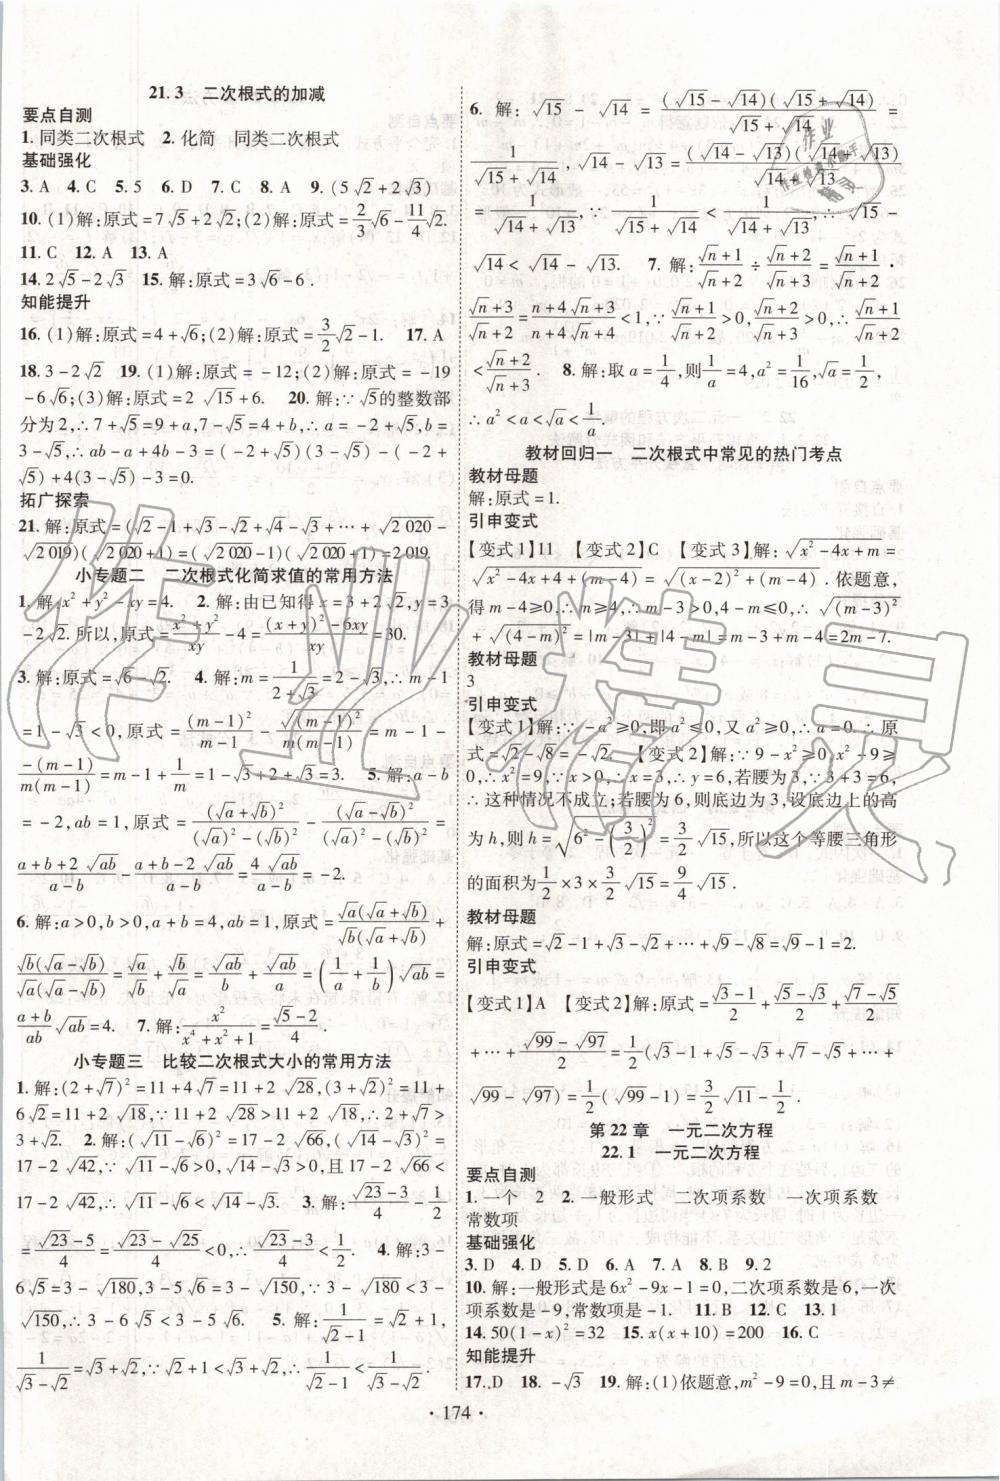 21.3 二次根式的加减
要点自测
1. 同类二次根式 2. 化简 同类二次根式
基础强化
3. A 4. C 5. 5 6. D 7. C 8. A 9. (5√2+2√3)
10. (1)解:原式=7√5+2√2;(2)解:原式=2/3√6-11/4√2.
11. C 12. A 13. A
14. 2√5-2√3 15. 解:原式=3√6-6.
知能提升
16. (1)解:原式=4+√6;(2)解:原式=-3/2√2-1. 17. A
18. 3-2√2 19. (1)解:原式=-6;(2)解:原式=-19
-6√6;(3)解:原式=2√15+6. 20. 解:∵√5的整数部
分为2,∴7+√5=9+a,7-√5=4+b,∴a=-2+√5,b=
3-√5,∴ab-a+4b-3=(-2+√5)(3-√5)-(-2+
√5)+4(3-√5)-3=0.
拓广探索
21. 解:原式=(√2-1+√3-√2+√4-√3+⋯+√2 020-
√2 019)(√2 020+1)=(√2 020-1)(√2 020+1)=2019.
小专题二 二次根式化简求值的常用方法
1. 解:x²+y²-xy=4. 2. 解:由已知得x=3+2√2,y=3
-2√2.所以,原式=(x²+y²)/xy-4=((x+y)²-6xy)/xy=30.
3. 解:原式=√6-√2. 4. 解:m=1/(2+√3)=2-√3,∴m-1
=1-√3<0,原式=(m-1)²/(m-1)-√(m-1)²/(m(m-1))=m-1-
-(m-1)/(m(m-1))=m-1+1/m=1-√3+2+√3=3. 5. 解:a-b
=-2,ab=1,原式=(√a+√b)²/((√a)²-(√b)²)-(√a-√b)²/((√a)²-(√b)²)=
(a+b+2√ab)/(a-b)-(a+b-2√ab)/(a-b)=4√ab/(a-b)=-2.
6. 解:a>0,b>0,a+b=4,ab=1,原式=√a(√a+√b)/(√b(√a+√b))+
√b(√a-√b)/(√a(√a-√b))=√a/√b+√b/√a=√ab/b+√ab/a=(1/a+1/b)·√ab=
(a+b)/ab√ab=4. 7. 解:x²/(x⁴+x²+1)=(√5-2)/4.
小专题三 比较二次根式大小的常用方法
1. 解:(2+√7)²=11+4√7=11+2√28,(3+√2)²=11+
6√2=11+2√18,∵11+2√28>11+2√18,∴2+√7>
3+√2. 2. 解:(√11-√6)²=17-2√66,(√14-√3)²=
17-2√42,∵17-2√66<17-2√42,∴17-2√66<
17-2√42,∴√11-√6<√14-√3. 3. 解:(√23-3)/4-1/2
=(√23-5)/4=(√23-√25)/4<0,∴(√23-3)/4<1/2. 4. 解:3-
6√5=3-√180,3-5√6=3-√150,∵3-√180<3-
√150,∴3-6√5<3-5√6. 5. 解:1/(√2-1)=√2+1,
1/(√3-√2)=√3+√2,∵√2+1<√3+√2,∴1/(√2-1)<1/(√3-√2).
6. 解:√15-√14=(√15-√14)(√15+√14)/(√15+√14)=
1/(√15+√14),√14-√13=(√14-√13)(√14+√13)/(√14+√13)=
1/(√14+√13),∵1/(√15+√14)<1/(√14+√13),∴√15-
√14<√14-√13. 7. 解:√(n+1)/√(n+2)÷√(n+2)/√(n+3)=√(n+1)/√(n+2)·
√(n+3)/√(n+2)=√(n²+4n+3)/√(n²+4n+4)<1,∵√(n+1)/√(n+2)>0,√(n+2)/√(n+3)>0,∴√(n+1)/√(n+2)
<√(n+2)/√(n+3). 8. 解:取a=1/4,则1/a=4,a²=1/16,√a=1/2,
∴a²<a<√a<1/a.
教材回归一 二次根式中常见的热门考点
教材母题
解:原式=1.
引申变式
【变式1】11 【变式2】C 【变式3】解:√(x²-4x+m)=
√(x²-4x+4+(m-4))=√((x-2)²+(m-4)).依题意,
得m-4≥0,∴m-3>0,4-m≤0,∴√(m-3)²
+√(4-m)²=|m-3|+|4-m|=m-3+m-4=2m-7.
教材母题
3
引申变式
【变式1】解:∵-a²≥0,即a²≤0,又a²≥0,∴a=0,∴原
式=√2-√8=-√2. 【变式2】解:∵9-x²≥0,x²-9≥
0,∴x²=9,∵x+3≠0,∴x=3,∴y=6,若腰为3,∵3+3=6,
∴这种情况不成立;若腰为6,则底边为3,设底边上的高
为h,则h=√(6²-(3/2)²)=3/2√15,所以这个等腰三角形
的面积为1/2×3×3/2√15=9/4√15.
教材母题
解:原式=√2-1+√3-√2+⋯+√9-√8=√9-1=2.
引申变式
【变式1】A 【变式2】解:原式=(√3-1)/2+(√5-√3)/2+(√7-√5)/2
+⋯+(√99-√97)/2=1/2(√3-1+√5-√3+√7-√5+⋯+
√99-√97)=1/2(√99-1)=3/2√11-1/2.
第22章 一元二次方程
22.1 一元二次方程
要点自测
1. 一个 2 2. 一般形式 二次项系数 一次项系数
常数项
基础强化
3. D 4. D 5. D 6. A 7. A 8. B 9. 2
10. 解:一般形式是6x²-9x-1=0,二次项系数是6,一次
项系数是-9,常数项是-1. 11. B 12. C 13. 1
14. 50(1-x)²=32 15. x(x+10)=200 16. C
知能提升
17. D 18. -√3 19. 解:(1)依题意,m²-9=0,且m-3≠
· 174 ·